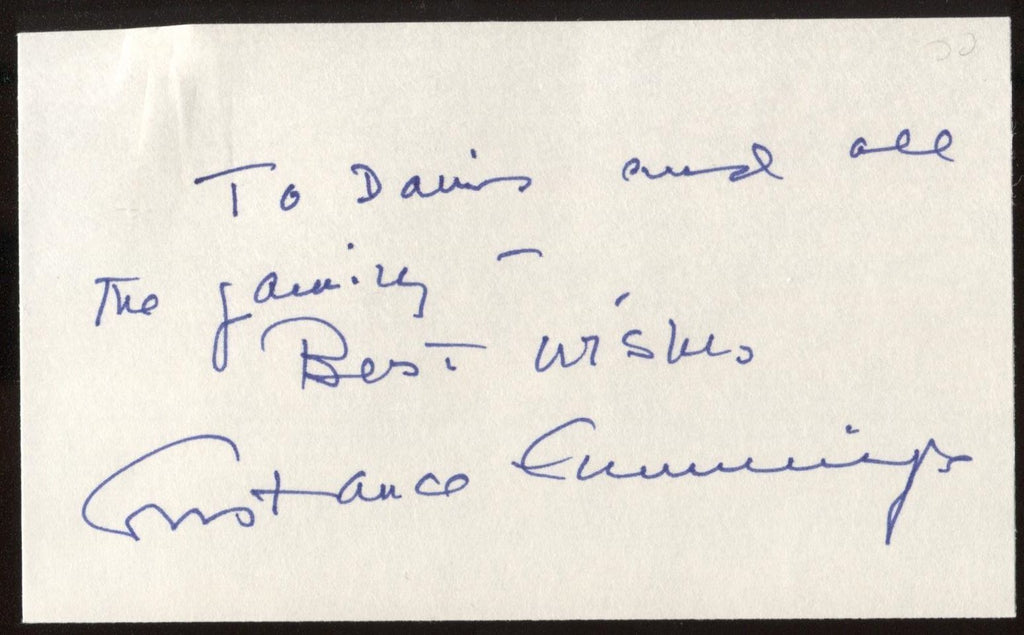 To Dannis and all
The family –
Best wishes
Constance Cummings